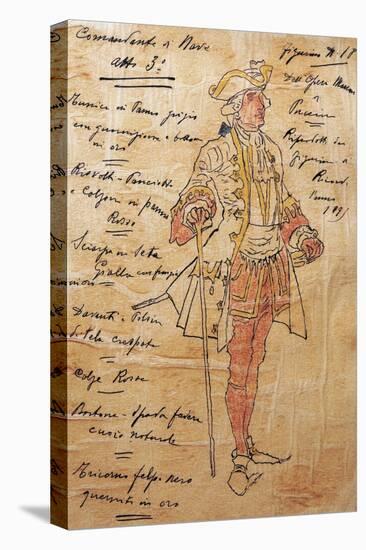 Comandante di Nave
Atto 3º
figurino Nº 18
Dall' Opera Manon
Puccini
Tunica in panno grigio
con guarnizioni e bottoni
in oro
figurino
Risvolti - Panciotto
e calzoni in panno
Rosso
Sciarpa in Seta
Gialla con frangia
Davanti e Polsini
di tela crespata
Calze Rosse
Bastone - Spada fodero
cuoio naturale
Tricorno felpa nero
guernito in oro